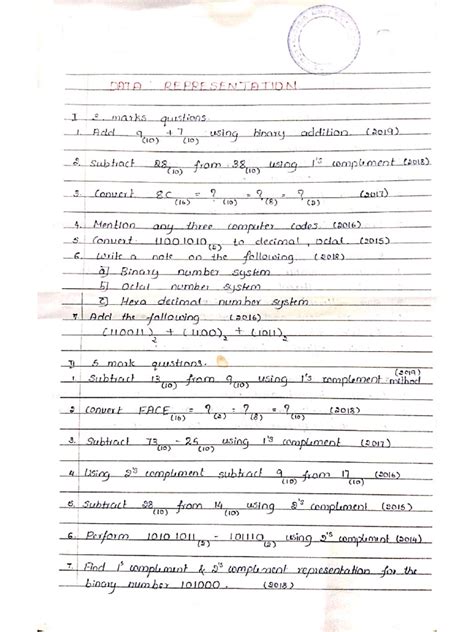 DATA REPRESENTATION
I 2. marks questions.
1. Add 9(10) + 7(10) using binary addition. (2019)
2. Subtract 28(10) from 38(10) using 1's complement (2018)
3. Convert 8C(16) = ?(10) = ?(8) = ?(2) (2017)
4. Mention any three computer codes. (2016)
5. Convert 1100.1010(2) to decimal, octal (2015)
6. Write a note on the following. (2018)
a) Binary number system
b) Octal number system
c) Hexa decimal number system
7. Add the following (2016)
(110011)2 + (1100)2 + (1011)2
II 5 mark questions.
1. Subtract 13(10) from 9(10) using 1's complement method (2019)
2 Convert FACE(16) = ?(2) = ?(8) = ?(10) (2018)
3. Subtract 73(10) - 25(10) using 1's complement (2017)
4 Using 2's complement subtract 9(10) from 17(10) (2016)
5. Subtract 28(10) from 14(10) using 2's complement (2015)
6. Perform 1010.1011(2) - 1011.10(2) using 2's complement (2014)
7. Find 1's complement & 2's complement representation for the
binary number 101000. (2013)